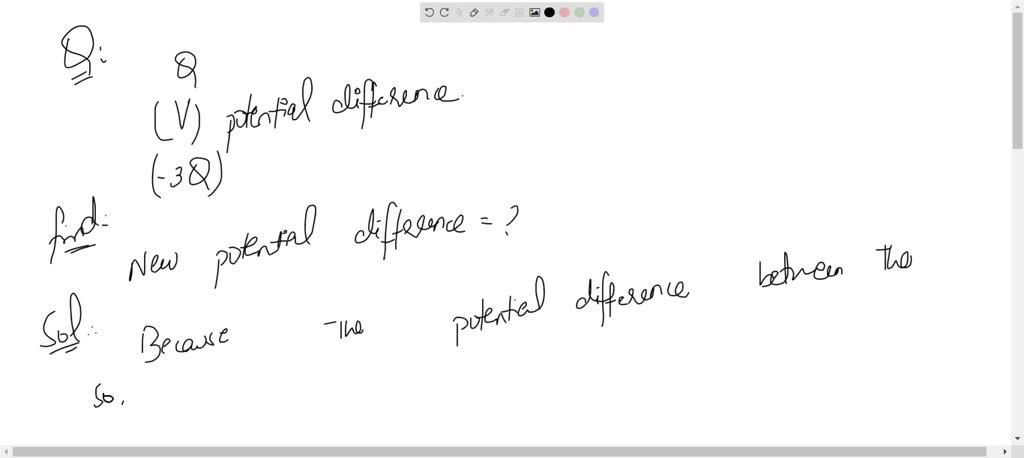 Q:
Q
(V) potential difference.
(-3Q)
find:
New potential difference = ?
Sol: Because The potential difference between the
So,